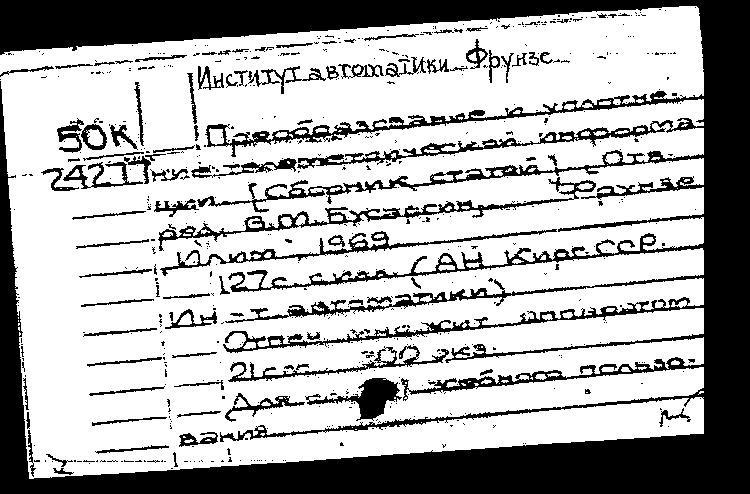 Институт автоматики Фрунзе
50К Преобразование и уплотне-
24277 ние телеметрической информа-
ции. [Сборник статей]. Отв.
ред. В.М. Фрунзе
"Илим", 1969
127 с. с илл. (АН Кирг.ССР.
Ин-т автоматики)
Отпеч. множит. аппаратом
21 см 300 экз.
Для служебного пользо-
вания